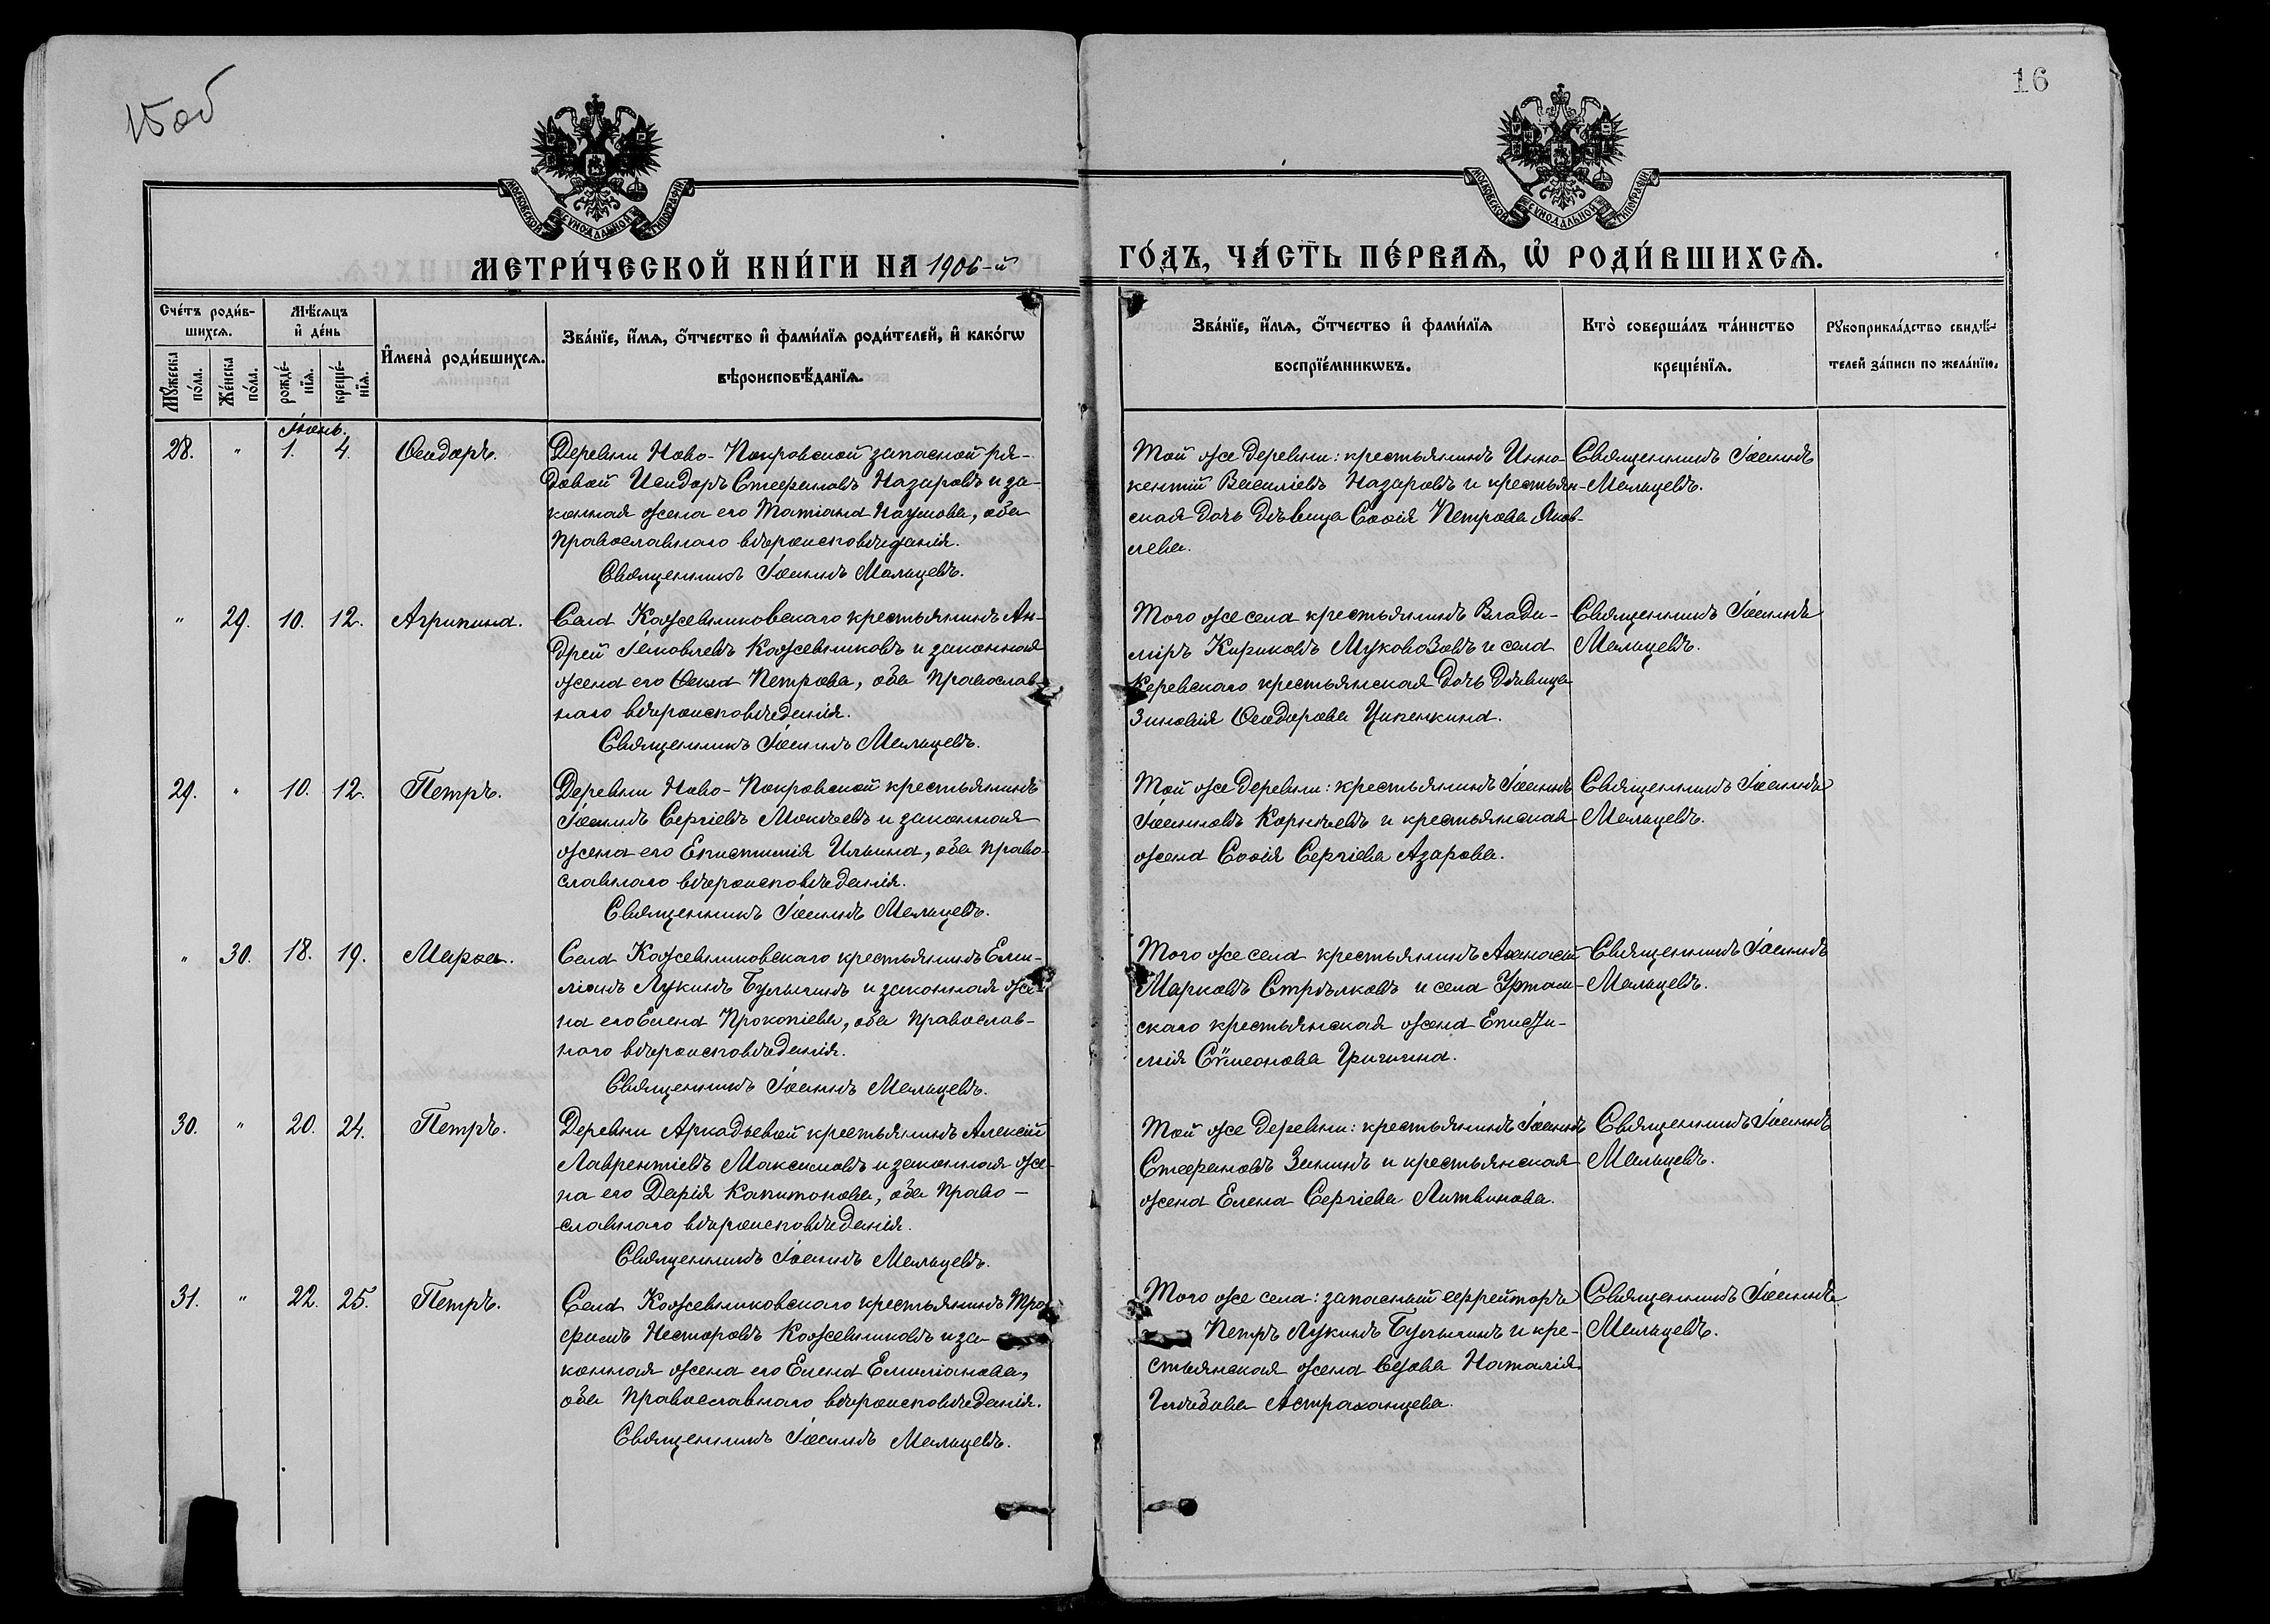 15 об
16
МОСКОВСКОЙ СѴНОДАЛЬНОЙ ТИПОГРАФІИ
МОСКОВСКОЙ СѴНОДАЛЬНОЙ ТИПОГРАФІИ
МЕТРИ́ЧЕСКОЙ КНИ́ГИ НА 1906-й
ГО́ДЪ, ЧА́СТЬ ПЕ́РВАѦ, Ѡ҆ РОДИ́ВШИХСѦ.
Сче́тъ роди́в-
шихсѧ.
Мѣ́сѧцъ
и҆ де́нь
Мꙋ́жеска
по́ла.
Же́нска
по́ла.
рожде́-
нїѧ.
креще́-
нїѧ.
И҆мена̀ роди́вшихсѧ.
Зва́нїе, и҆́мѧ, ѻ҆́тчество и҆ фами́лїѧ роди́телей, и҆ како́гѡ
вѣроисповѣ́данїѧ.
Зва́нїе, и҆́мѧ, ѻ҆́тчество и҆ фами́лїѧ
воспрїе́мникѡвъ.
Кто̀ соверша́лъ та́инство
креще́нїѧ.
Рꙋкоприкла́дство свидѣ́-
телей за́писи по жела́нїю.
Іюнь.
28. " 1. 4. Ѳеодоръ.
Деревни Ново-Покровской запасной ря-
довой Исидоръ Стефановъ Назаровъ и за-
конная жена его Татіана Наумова, оба
православнаго вѣроисповѣданія.
Священникъ Іоаннъ Мальцевъ.
Той же деревни: крестьянинъ Инно-
кентій Василіевъ Назаровъ и крестьян-
ская дочь дѣвица Софія Петрова Яков-
лева.
Священникъ Іоаннъ
Мальцевъ.
" 29. 10. 12. Агрипина.
Села Кожевниковскаго крестьянинъ Ан-
дрей Іаковлевъ Кожевниковъ и законная
жена его Ѳекла Петрова, оба православ-
наго вѣроисповѣданія.
Священникъ Іоаннъ Мальцевъ.
Того же села крестьянинъ Влади-
міръ Кириковъ Муковозовъ и села
Керевскаго крестьянская дочь дѣвица
Зиновія Ѳеодорова Ципенкина.
Священникъ Іоаннъ
Мальцевъ.
29. " 10. 12. Петръ.
Деревни Ново-Покровской крестьянинъ
Іоаннъ Сергіевъ Мокѣевъ и законная
жена его Епистимія Ильина, оба право-
славнаго вѣроисповѣданія.
Священникъ Іоаннъ Мальцевъ.
Той же деревни: крестьянинъ Іоаннъ
Іоанновъ Корнѣевъ и крестьянская
жена Софія Сергіева Азарова.
Священникъ Іоаннъ
Мальцевъ.
" 30. 18. 19. Марѳа.
Села Кожевниковскаго крестьянинъ Еми-
ліанъ Лукинъ Булычинъ и законная же-
на его Елена Прокопіева, оба православ-
наго вѣроисповѣданія.
Священникъ Іоаннъ Мальцевъ.
Того же села крестьянинъ Аѳанасій
Марковъ Стрѣлковъ и села Уртам-
скаго крестьянская жена Еписти-
мія Сѵмеонова
Священникъ Іоаннъ
Мальцевъ.
30. " 20. 24. Петръ.
Деревни Аркадьевой крестьянинъ Алексій
Лаврентіевъ Максимовъ и законная же-
на его Дарія Капитонова, оба право-
славнаго вѣроисповѣданія.
Священникъ Іоаннъ Мальцевъ.
Той же деревни: крестьянинъ Іоаннъ
Стефановъ Зининъ и крестьянская
жена Елена Сергіева Литвинова.
Священникъ Іоаннъ
Мальцевъ.
31. " 22. 25. Петръ.
Села Кожевниковскаго крестьянинъ Тро-
фимъ Несторовъ Кожевниковъ и за-
конная жена его Елена Емиліанова,
оба православнаго вѣроисповѣданія.
Священникъ Іоаннъ Мальцевъ.
Того же села: запасный ефрейторъ
Петръ Лукинъ Булычинъ и кре-
стьянская жена вдова Наталія
Глѣбова Астраханцева.
Священникъ Іоаннъ
Мальцевъ.